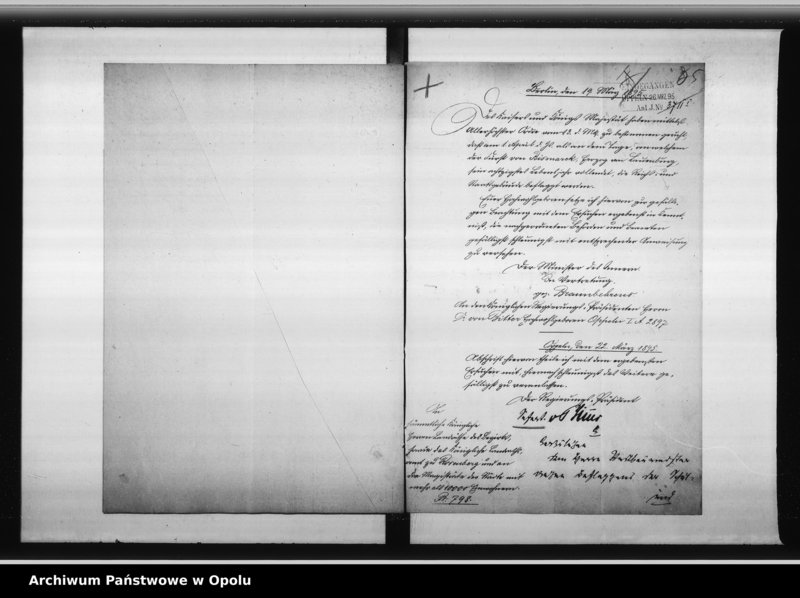 85
Berlin, den 19. März 1895.
EINGEGANGEN
OPPELN 26 MRZ. 95
Ant J. Nr. 3711
Des Kaisers und Königs Majestät haben mittelst
Allerhöchster Ordre vom 18. d. Mts. zu bestimmen geruht,
daß am 1. April d. Js. als an dem Tage, an welchem
der Fürst von Bismarck, Herzog von Lauenburg
sein achtzigstes Lebensjahr vollendet, die Reichs- und
Staatsgebäude beflaggt werden.
Euer Hochwohlgeboren setze ich hiervon zur gefälli-
gen Beachtung mit dem Ersuchen ergebenst in Kennt-
niß, die nachgeordneten Behörden und Beamten
gefälligst schleunigst mit entsprechender Anweisung
zu versehen.
Der Minister des Innern
In Vertretung.
gez. Braunbehrens
An den Königlichen Regierungs-Präsidenten Herrn
von Bitter Hochwohlgeboren Oppeln I. A. 2897
Oppeln, den 22. März 1895.
Abschrift hiervon theile ich mit dem ergebensten
Ersuchen mit, hiernach schleunigst das Weitere ge-
fälligst zu veranlassen.
Der Regierungs-Präsident
An
sämmtliche Königliche
Herren Landräthe des Bezirks,
das Königliche Landraths-
amt zu Rosenberg und an
die Magisträte der Städte mit
mehr als 10000 Einwohnern.
dem Herrn
wegen Beflaggens der
und
Archiwum Państwowe w Opolu